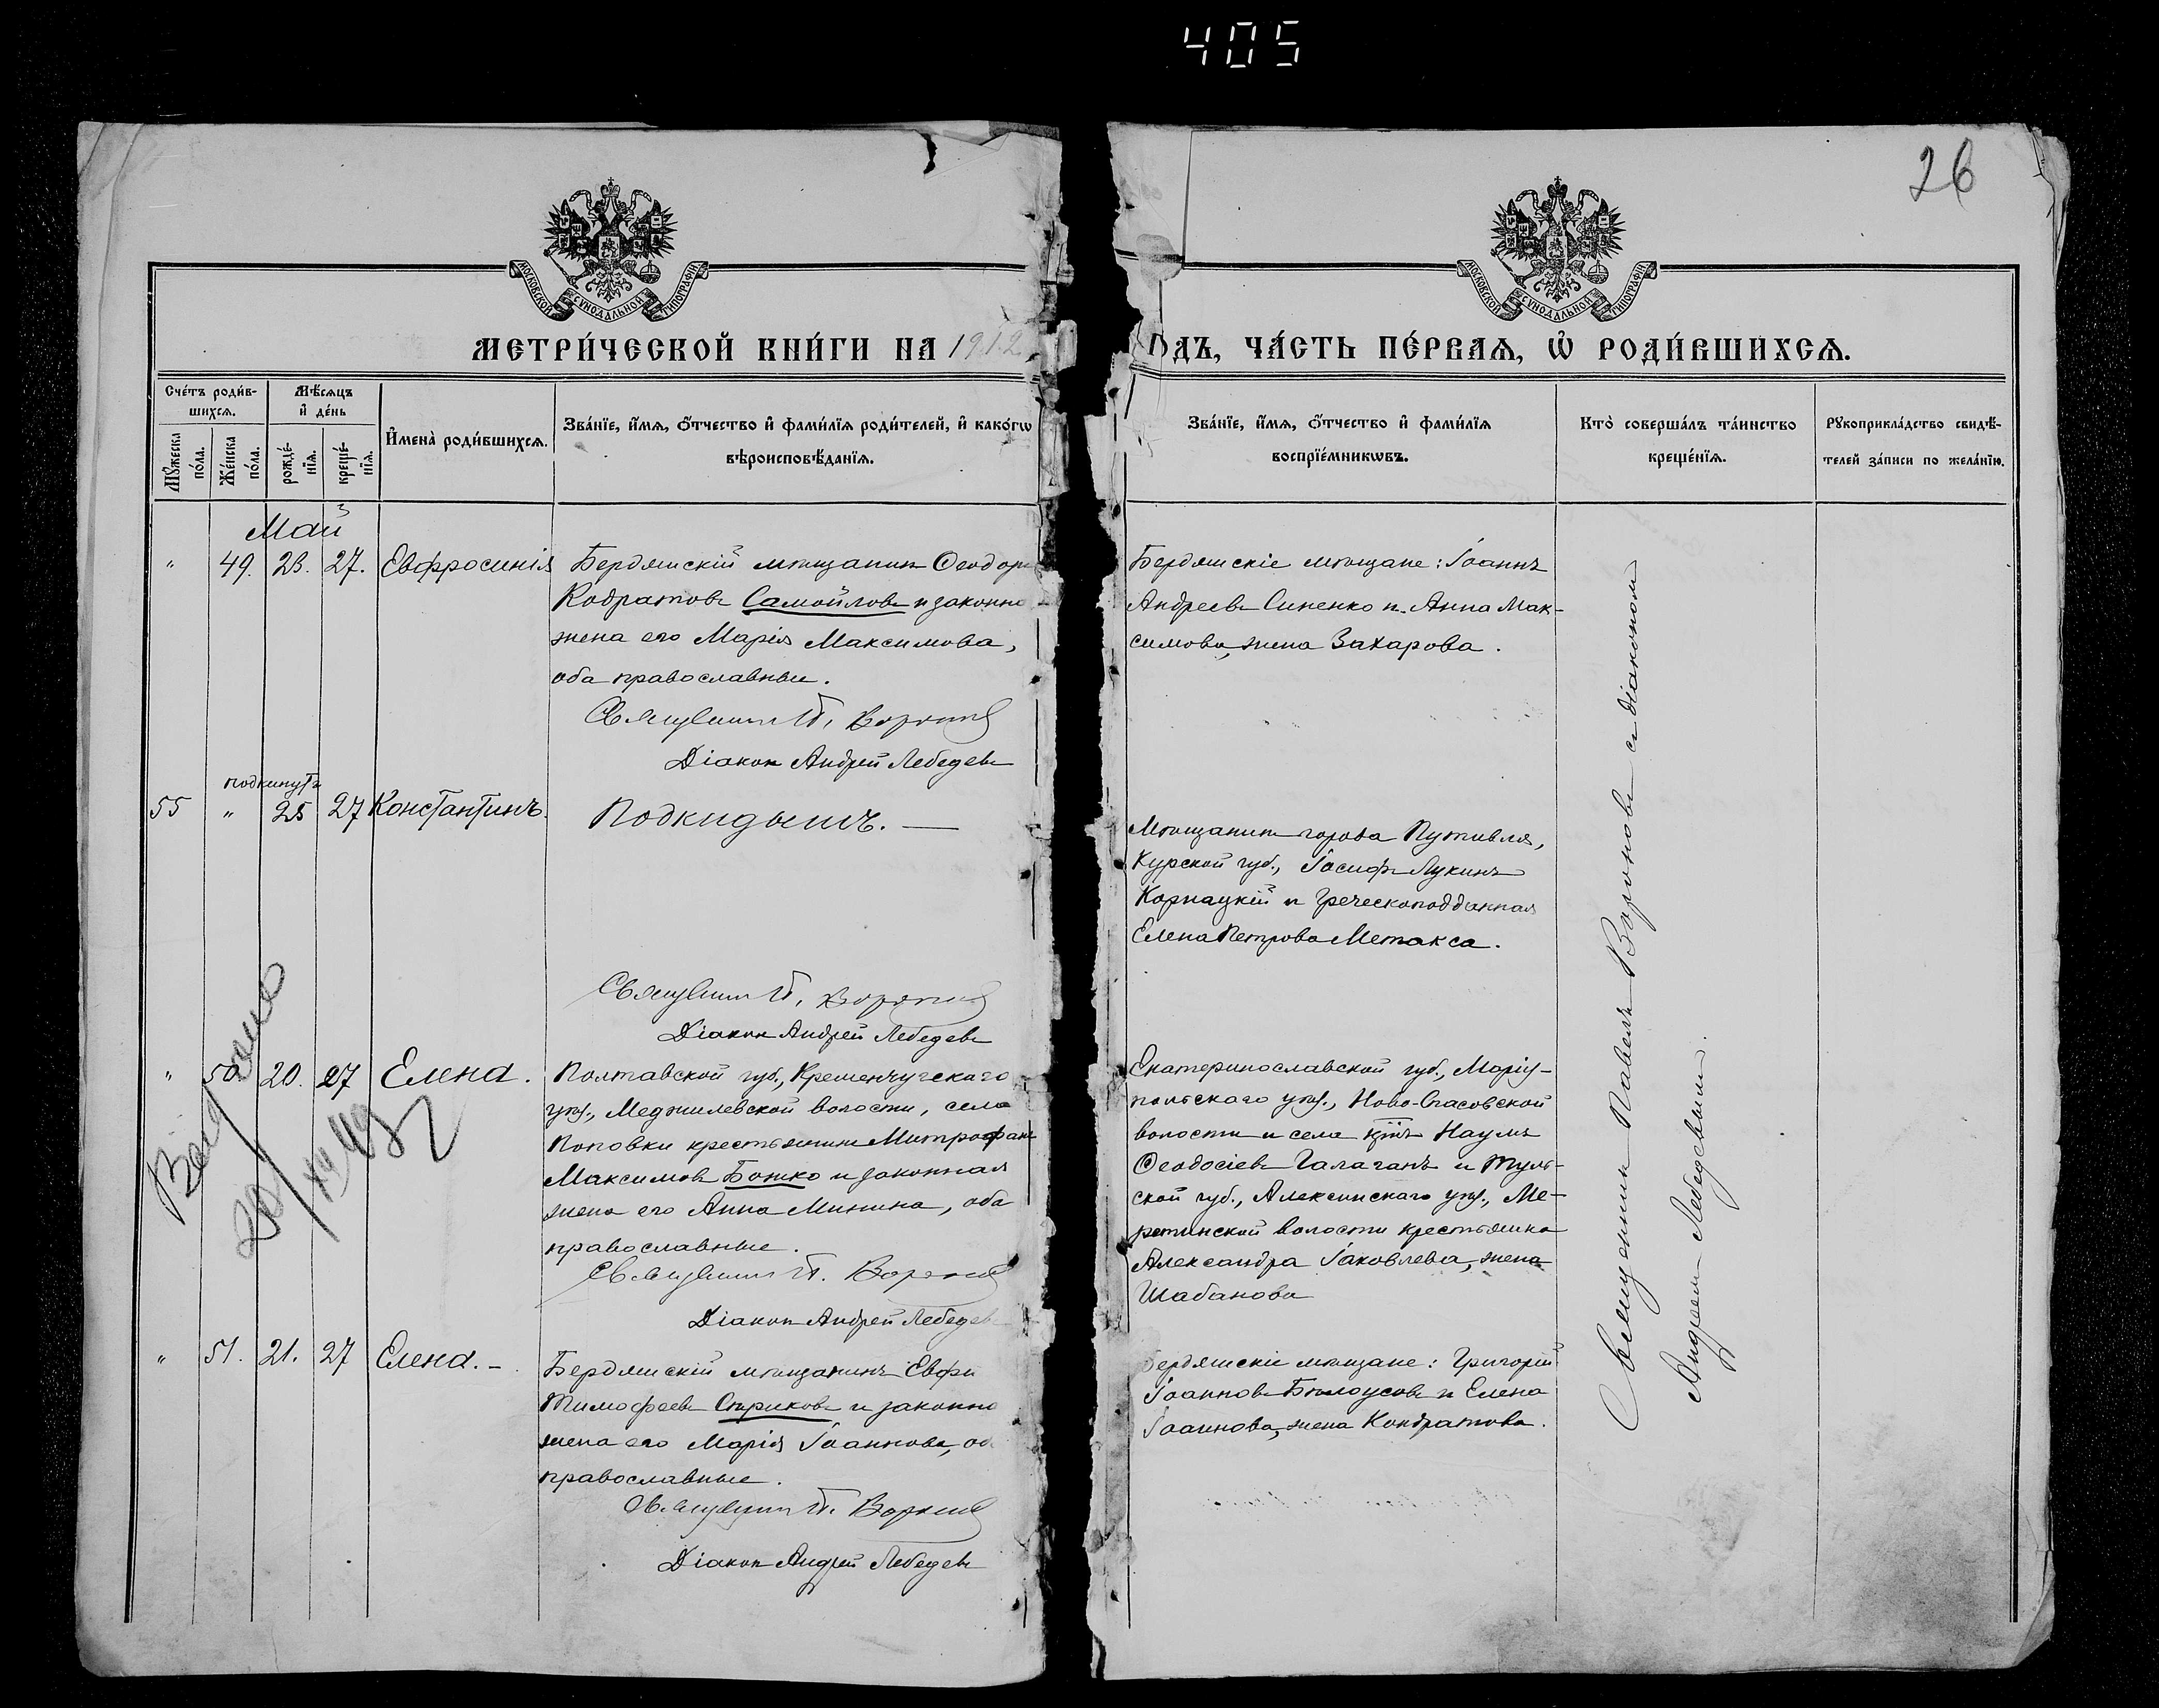 405
26
МОСКОВСКОЙ СѴНОДАЛЬНОЙ ТИПОГРАФІИ
МОСКОВСКОЙ СѴНОДАЛЬНОЙ ТИПОГРАФІИ
МЕТРИ́ЧЕСКОЙ КНИ́ГИ НА 1912
ОДЪ, ЧА́СТЬ ПЕ́РВАѦ, Ѡ҆ РОДИ́ВШИХСѦ.
Сче́тъ роди́в-
шихсѧ.
Мѣ́сѧцъ
и҆ де́нь
Мꙋ́жеска по́ла.
Же́нска по́ла.
рожде́-
нїѧ.
креще́-
нїѧ.
И҆мена̀ роди́вшихсѧ.
Зва́нїе, и҆́мѧ, ѻ҆́тчество и҆ фами́лїѧ роди́телей, и҆ како́гѡ
вѣроисповѣ́данїѧ.
Зва́нїе, и҆́мѧ, ѻ҆́тчество и҆ фами́лїѧ
воспрїе́мникѡвъ.
Кто̀ соверша́лъ та́инство
креще́нїѧ.
Рꙋкоприкла́дство свидѣ́-
телей за́писи по жела́нїю.
Май
" 49. 23. 27. Евфросинія
Бердянскій мѣщанинъ Ѳеодоръ
Кодратовъ Самойловъ и законно
жена его Марія Максимова,
оба православные.
Священникъ П. Вороновъ
Діаконъ Андрей Лебедевъ
Бердянскіе мѣщане: Іоаннъ
Андреевъ Синенко и Анна Мак-
симова, жена Захарова.
подкинутъ
55 " 25 27 Константинъ.
Подкидышъ. —
Священникъ П. Вороновъ
Діаконъ Андрей Лебедевъ
Мѣщанинъ города Путивля,
Курской губ., Іосифъ Лукинъ
Корнацкій и греческоподданная
Елена Петрова Метакса.
" 50. 20. 27 Елена.
Полтавской губ., Кременчугскаго
уѣз., волости, села
Поповки крестьянинъ Митрофанъ
Максимовъ Божко и законная
жена его Анна Минина, оба
православные.
Священникъ П. Вороновъ
Діаконъ Андрей Лебедевъ
Екатеринославской губ., Маріу-
польскаго уѣз., Ново-Спасовской
волости и села кр҃нъ Наумъ
Ѳеодосіевъ Галаганъ и Туль-
ской губ., Алексинскаго уѣз., Ме-
ретинской волости крестьянка
Александра Іаковлева, жена
Шабанова
" 51. 21. 27 Елена. -
Бердянскій мѣщанинъ Евфи
Тимофеевъ Стриковъ и законно
жена его Марія Іоаннова, об
православные.
Священникъ П. Вороновъ
Діаконъ Андрей Лебедевъ
Бердянскіе мѣщане: Григорій
Іоанновъ Бѣлоусовъ и Елена
Іоаннова, жена Кондратова.
Священникъ Павелъ Вороновъ съ діакономъ
Андреемъ Лебедевымъ.